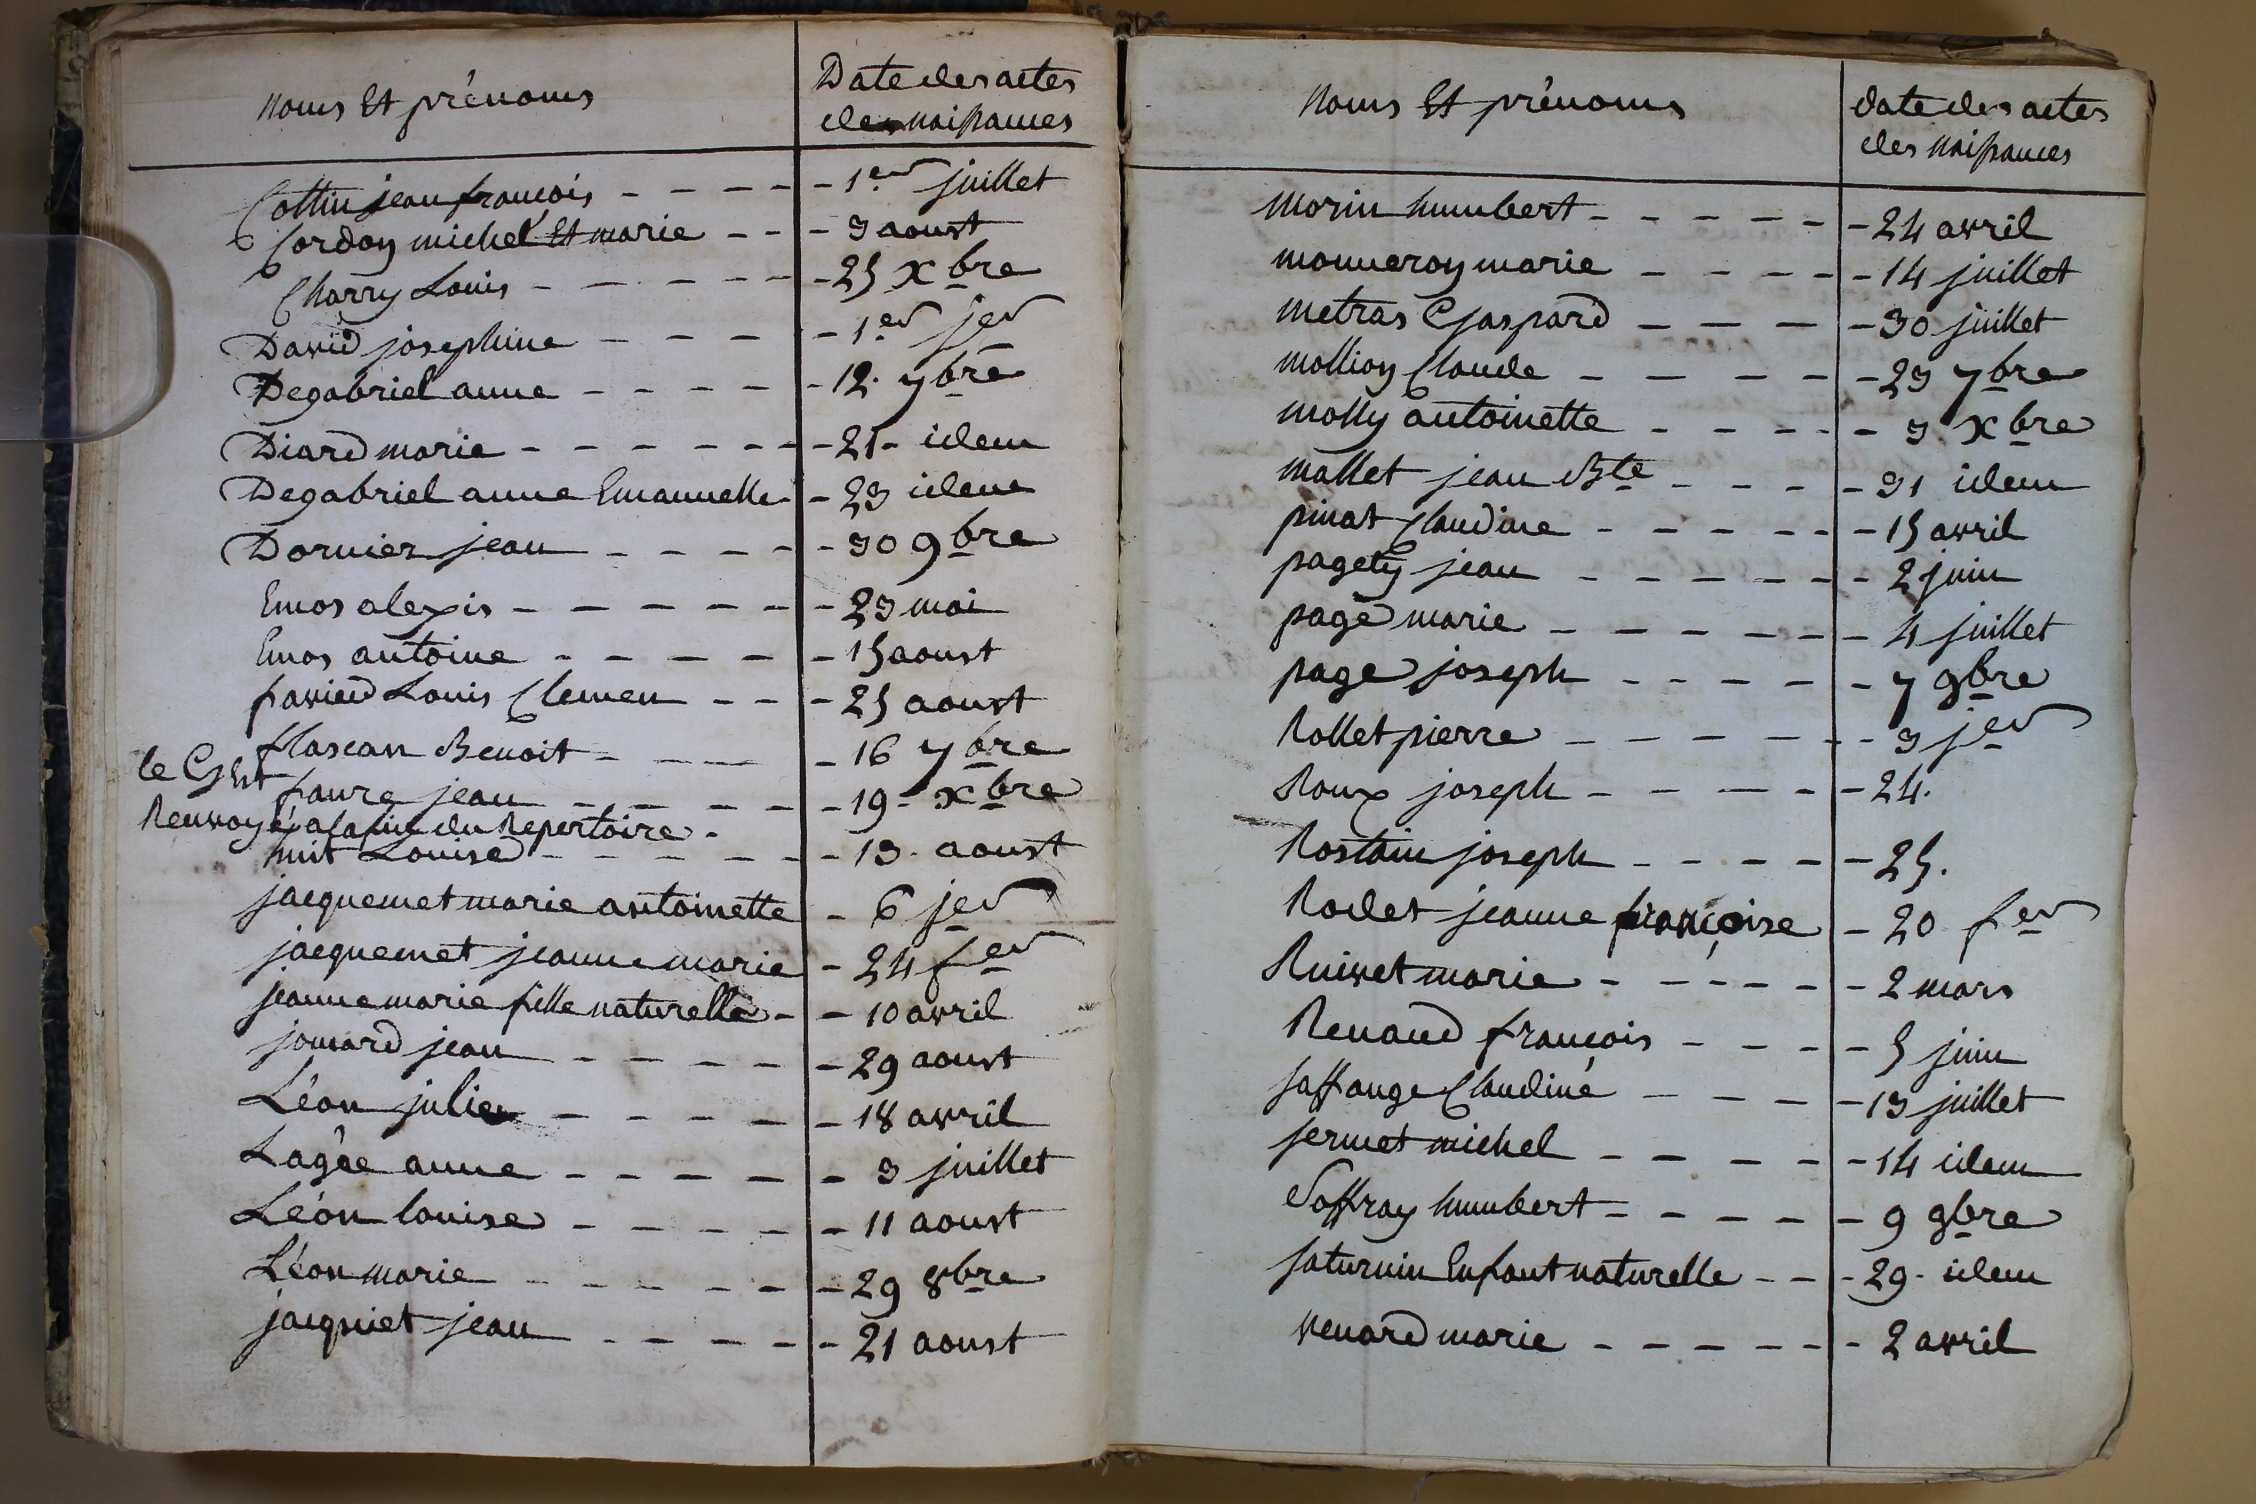 noms Et prénoms
Date des actes
des naissances
Cottin jean françois - - - - - 1er juillet
Cordon michel Et marie - - - 3 aoust
Charry Louis - - - - - - 25 Xbre
David josephine - - - - - 1er jer
Degabriel anne - - - - - 12. 7bre
Diard marie - - - - - - - 21 - idem
Degabriel anne Emanuelle - - 23 idem
Dornier jean - - - - - - 30 9bre
Emos alexis - - - - - - - 23 mai
Emos antoine - - - - - - 15 aoust
favier Louis Clemen - - - 25 aoust
flascan Benoit - - - - - 16 7bre
le G
faure jean - - - - - - 19 - Xbre
Renvoyé a la fin du Repertoire -
huit Louise - - - - - - - 13 - aoust
jacquemet marie antoinette - 6 jer
jacquemet jeanne marie - 24 fer
jeanne marie fille naturelle - - 10 avril
jomard jean - - - - - - 29 aoust
Léon julie - - - - - - 18 avril
Lagée anne - - - - - - 3 juillet
Léon louise - - - - - - 11 aoust
Léon marie - - - - - - 29 8bre
jacquiet jean - - - - - - 21 aoust
noms Et prénoms
date des actes
des naissances
morin humbert - - - - - - 24 avril
monneron marie - - - - - 14 juillet
metras Gaspard - - - - 30 juillet
mollion Claude - - - - - - 23 7bre
molly antoinette - - - - - 3 Xbre
mallet jean Bte - - - - - 31 idem
pinat Claudine - - - - - - 15 avril
pagety jean - - - - - - - 2 juin
page marie - - - - - - - 4 juillet
page joseph - - - - - - 7 9bre
Rollet pierre - - - - - - 3 jer
Roux joseph - - - - - - 24.
Rostain joseph - - - - - 25.
Rodet jeanne françoise - 20 fer
Ruivet marie - - - - - - 2 mars
Renaud françois - - - - - 5 juin
saffange Claudine - - - - - 13 juillet
sermet michel - - - - - - 14 idem
Soffray humbert - - - - - - 9 9bre
saturnin Enfant naturelle - - - 29 - idem
venard marie - - - - - - - 2 avril